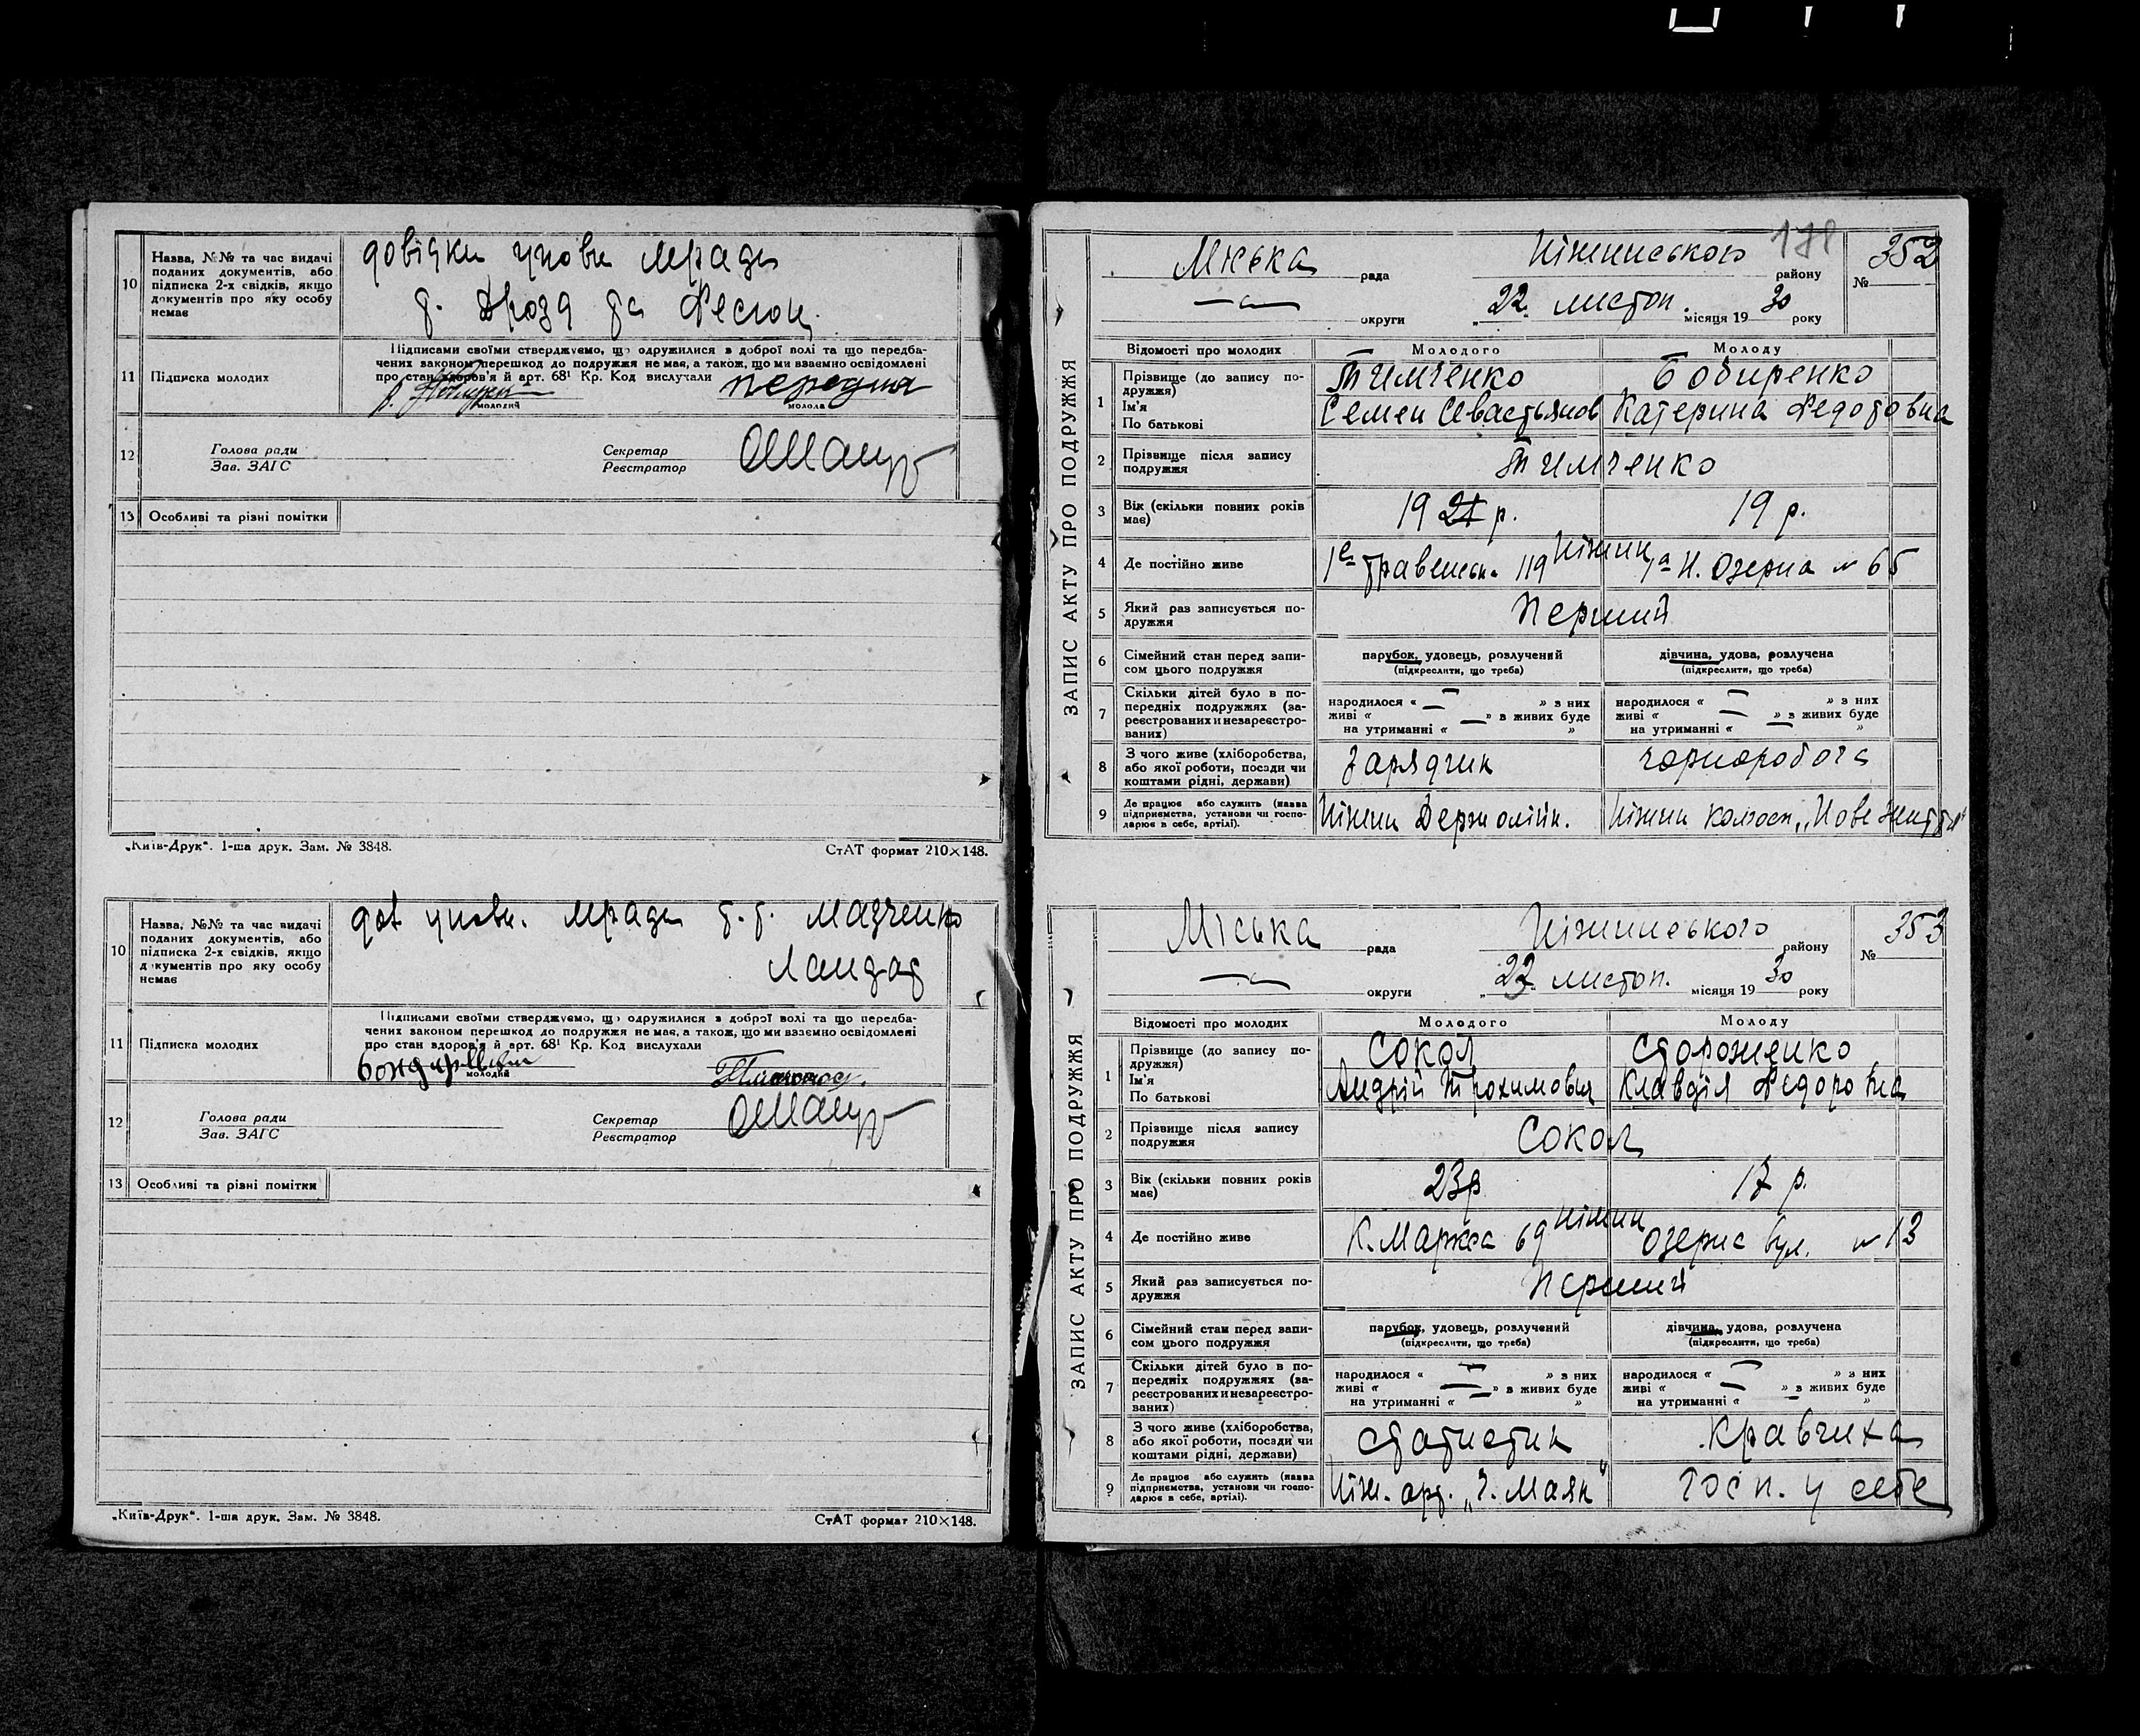 10
Назва, №№ та час видачі
поданих документів, або
підписка 2-х свідків, якщо
документів про яку особу
немає
довідки упови мради
т. Дрозд та
11
Підписка молодих
Підписами своїми стверджуємо, що одружилися в доброї волі та що передба-
чених законом перешкод до подружжя немає, а також, що ми взаємно освідомлені
про стан здоров'я й арт. 68¹ Кр. Код вислухали
молодий
молода
12
Голова ради
Зав. ЗАГС
Секретар
Реєстратор
13
Особливі та різні помітки
„Київ-Друк“. 1-ша друк. Зам. № 3848.
СтАТ формат 210×148.
10
Назва, №№ та час видачі
поданих документів, або
підписка 2-х свідків, якщо
документів про яку особу
немає
дов упови. мради т.т. Мазченко
11
Підписка молодих
Підписами своїми стверджуємо, що одружилися в доброї волі та що передба-
чених законом перешкод до подружжя немає, а також, що ми взаємно освідомлені
про стан здоров'я й арт. 68¹ Кр. Код вислухали
молодий
12
Голова ради
Зав. ЗАГС
Секретар
Реєстратор
13
Особливі та різні помітки
„Київ-Друк“. 1-ша друк. Зам. № 3848.
СтАТ формат 210×148.
178
ЗАПИС АКТУ ПРО ПОДРУЖЖЯ
Міська рада Ніжинського району № 352
— округи „22. листоп. місяця 1930 року
Відомості про молодих
Молодого
Молоду
1
Прізвище (до запису по-
дружжя)
Ім'я
По батькові
Тимченко
Семен Севастьянов
Бобиренко
Катерина Федотовна
2
Прізвище після запису
подружжя
Тимченко
3
Вік (скільки повних років
має)
19 21 р.
19 р.
4
Де постійно живе
1е травенськ. 119 Ніжин
1а Н. Озерна № 65
5
Який раз записується по-
дружжя
Перший
6
Сімейний стан перед запи-
сом цього подружжя
парубок, удовець, розлучений
(підкреслити, що треба)
дівчина, удова, розлучена
(підкреслити, що треба)
7
Скільки дітей було в по-
передніх подружжях (за-
реєстрованих и незареєстро-
ваних)
народилося « — » з них
живі « — » в живих буде
на утриманні « »
народилося « — » з них
живі « — » в живих буде
на утриманні « »
8
З чого живе (хліборобства,
або якої роботи, посади чи
коштами рідні, держави)
Зарядчик
чорноробоча
9
Де працює або служить (назва
підприємства, установи чи госпо-
дарює в себе, артілі).
Ніжин Держолійн.
Ніжин колгосп „Нове Життя“
ЗАПИС АКТУ ПРО ПОДРУЖЖЯ
Міська рада Ніжинського району № 353
— округи „23 листоп. місяця 1930 року
Відомості про молодих
Молодого
Молоду
1
Прізвище (до запису по-
дружжя)
Ім'я
По батькові
Сокол
Андрій Трохимович
Стороженко
Клавдія Федоровна
2
Прізвище після запису
подружжя
Сокол
3
Вік (скільки повних років
має)
23р
17 р.
4
Де постійно живе
К. Маркса 69 Ніжин
Озерна вул. № 13
5
Який раз записується по-
дружжя
Перший
6
Сімейний стан перед запи-
сом цього подружжя
парубок, удовець, розлучений
(підкреслити, що треба)
дівчина, удова, розлучена
(підкреслити, що треба)
7
Скільки дітей було в по-
передніх подружжях (за-
реєстрованих и незареєстро-
ваних)
народилося « — » з них
живі « — » в живих буде
на утриманні « »
народилося « — » з них
живі « — » в живих буде
на утриманні « »
8
З чого живе (хліборобства,
або якої роботи, посади чи
коштами рідні, держави)
статистик
кравчиха
9
Де працює або служить (назва
підприємства, установи чи госпо-
дарює в себе, артілі).
Ніж. арт. „Ч. Маяк“
Госп. у себе